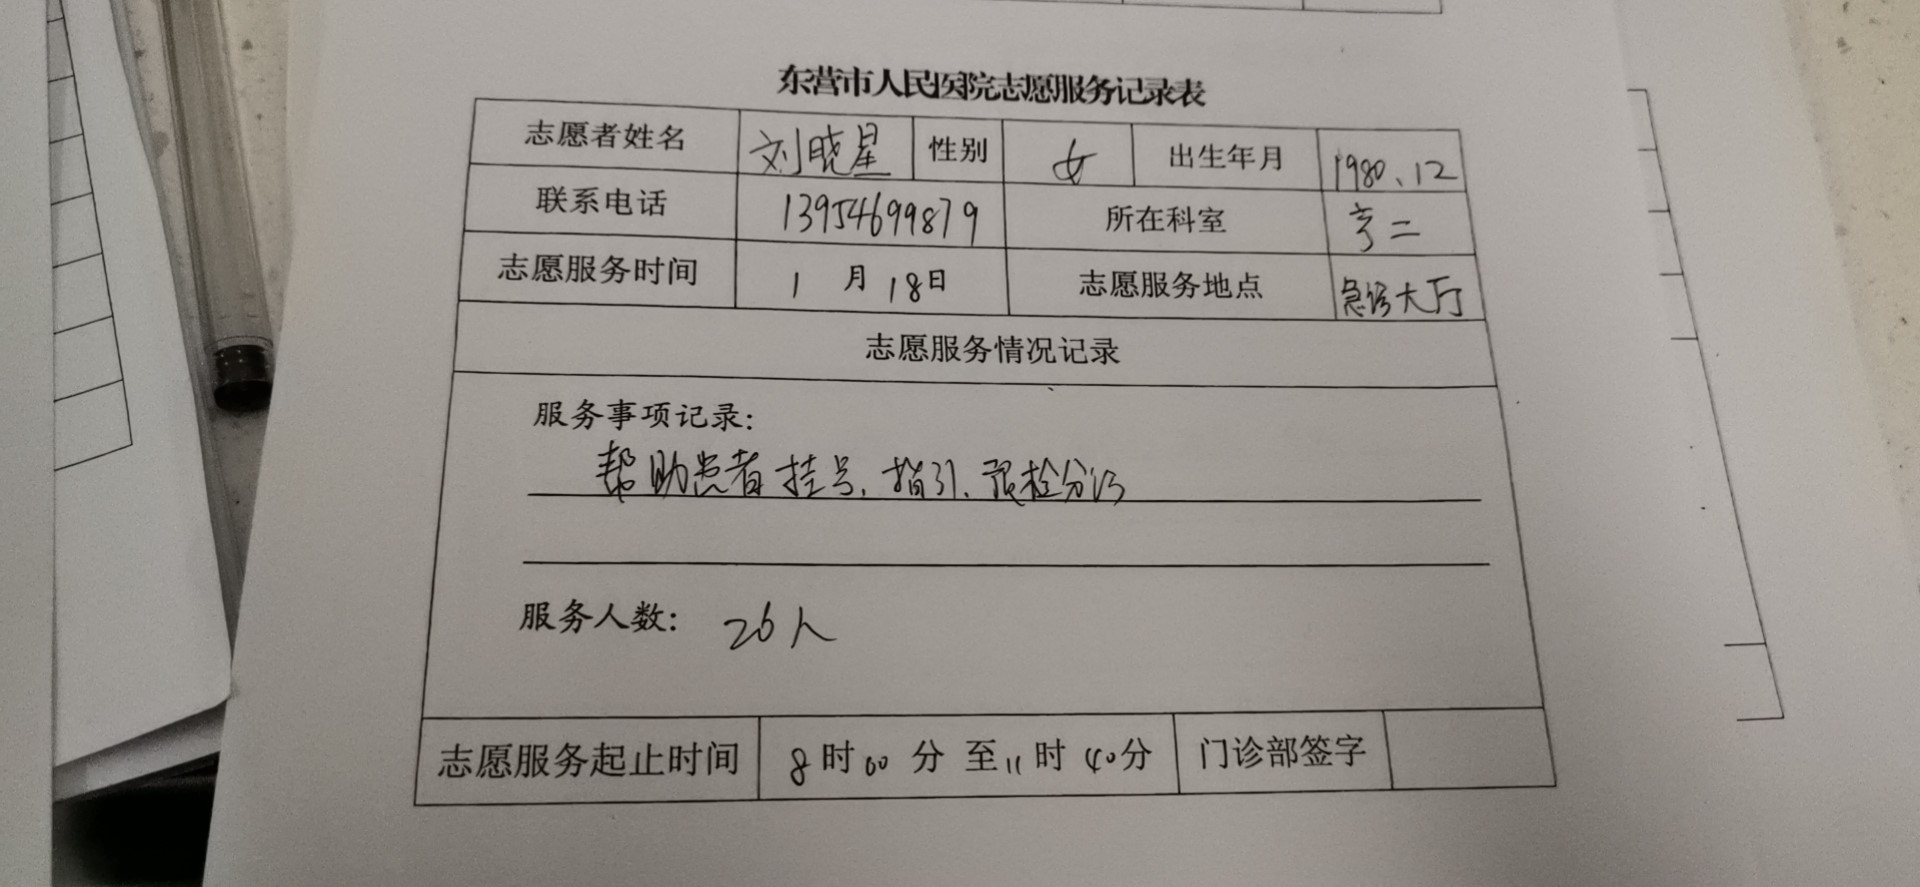 东营市人民医院志愿服务记录表
志愿者姓名 刘晓星 性别 女 出生年月 1980、12
联系电话 13954699879 所在科室 二
志愿服务时间 1 月 18日 志愿服务地点 急诊大厅
志愿服务情况记录
服务事项记录:
帮助患者挂号、指引、预检分诊
服务人数: 26人
志愿服务起止时间 8 时 00 分 至 11 时 40 分 门诊部签字